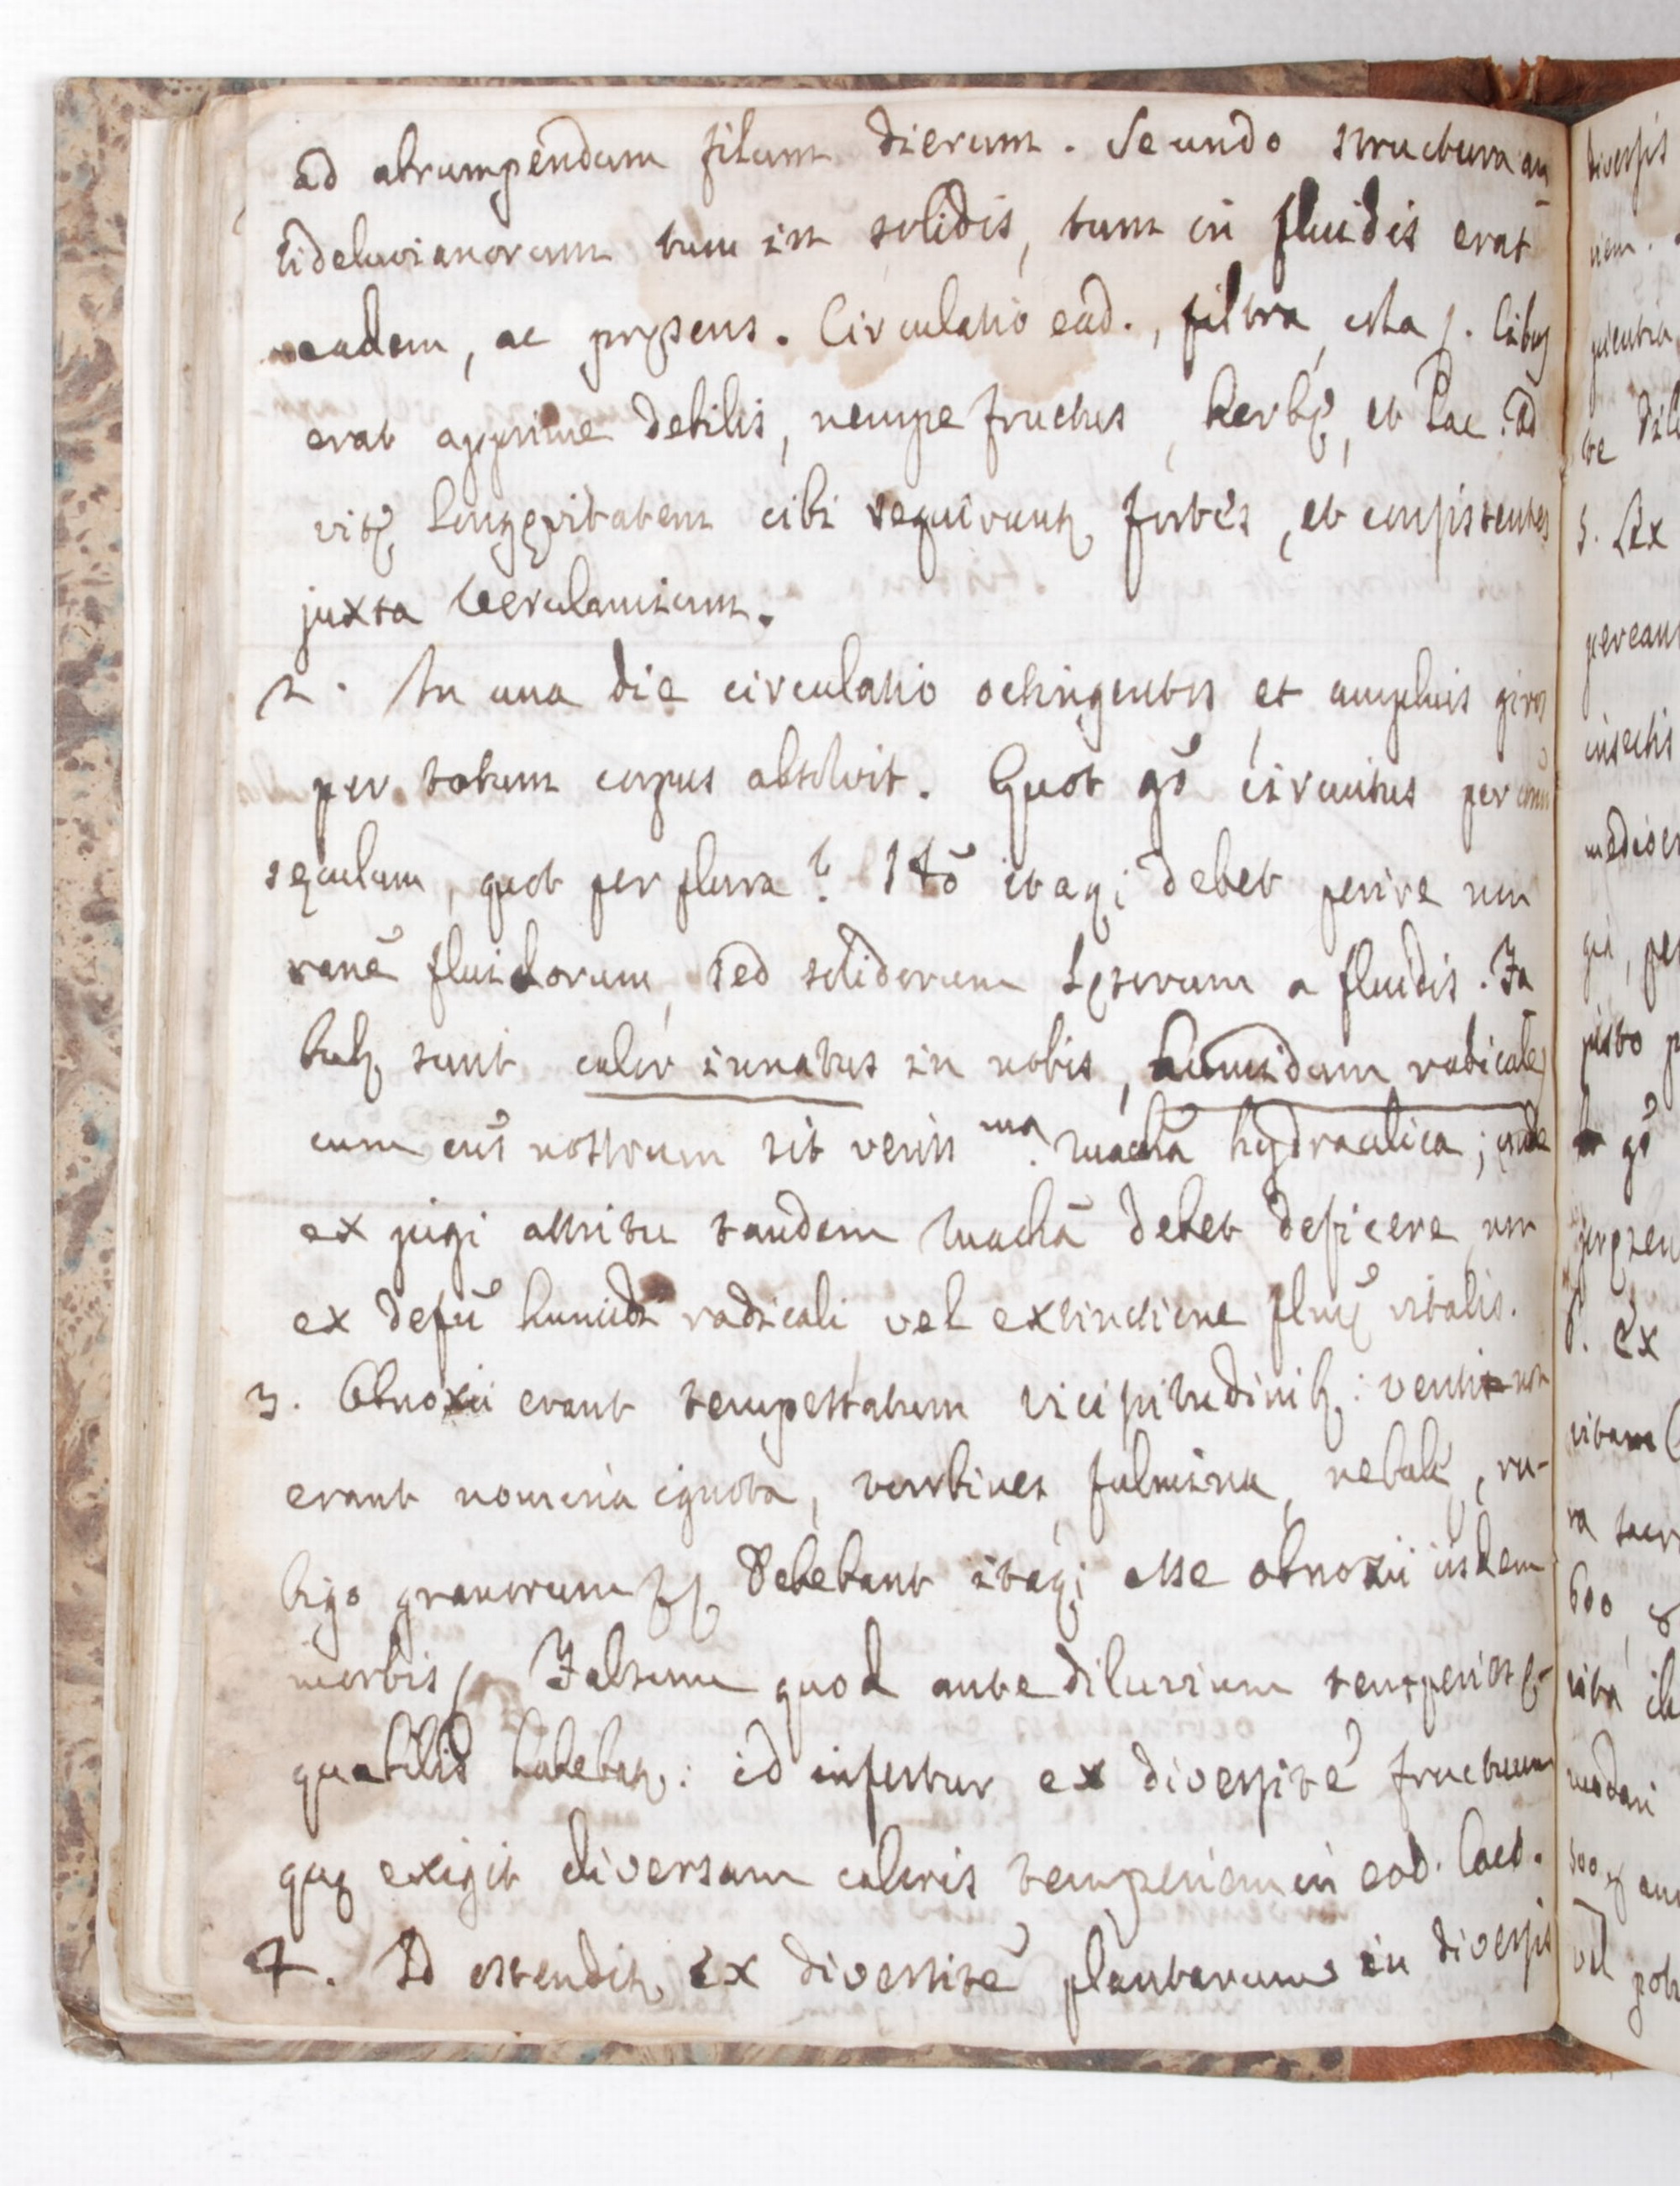 ad abrumpendum filum dierum. Secundo structura an
tideluvianorum tum in solidis, tum in fluidis erat
eadem, ac pręsens. Circulatio ead., filtra, esta ſ. Cibus
erat apprime debilis, nempe fructus, herbę, et Lac. Ad
vitę longęvitatem cibi requirunt[ur] fortes, et consistentes
juxta Verulamium.
2. In una die circulatio octingentos et amplius giros
per totum corpus absolvit. Quot gō circuitus per unū
seculum, quot per plura? itaq; debet perire non
ranē fluidorum, sed solidorum lęsorum a fluidis. Fa
bulę sunt calor innatus in nobis, humidum radicale,
cum nostrum sit veriss ma. machā hydraulica; unde
ex jugi attritu tandem machā debet deficere non
ex defū humidi radicali vel extinctione flamę vitalis.
3. Obnoxii erant tempestatum vicissitudinib[us]: venti non
erant nomina ignota, turbines, fulmina, nebulę, ru-
bigo granorum ꝛſ. Debebant itaq; esse obnoxii iisdem
morbis ſ. Falsum quod ante diluvium temperies ę-
quabilis habebat[ur]: id infertur ex diversitē fructuum
quę exigit diversam caloris temperiem in eod. loco.
4. Id ostendit[ur] ex diversitē plantarum in diversis
diversis
niem.
te dilu
5. Lex
pereant
insectis
medioer
justo p
gō
pręsen
6. Ex
vitam
ra sacr
600
vita
vel